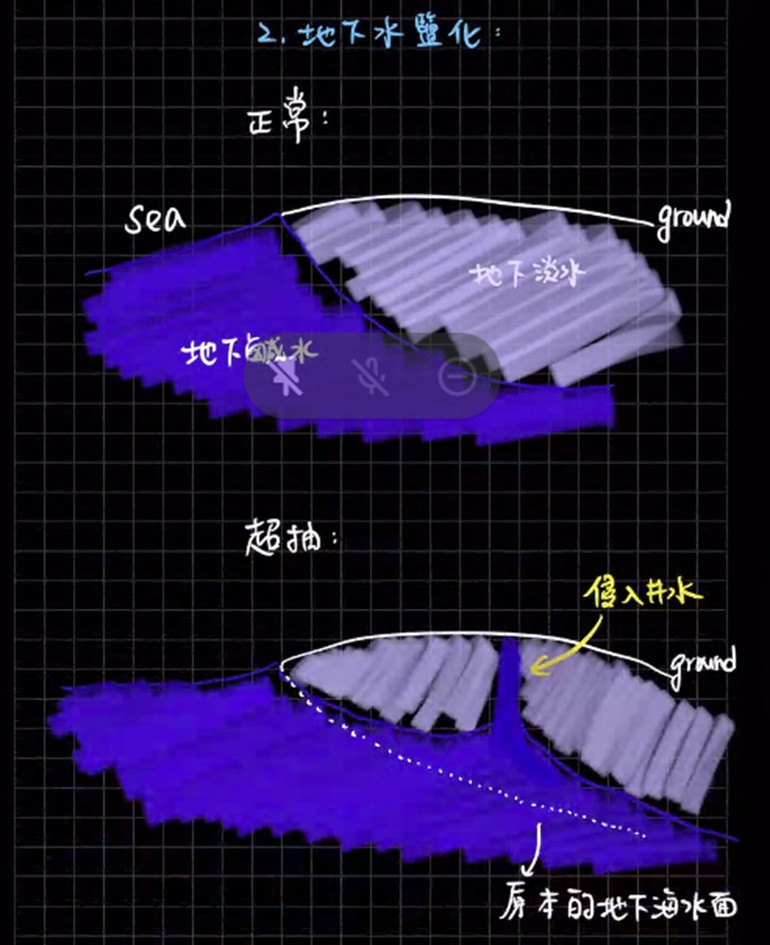 2. 地下水鹽化:
正常:
sea
ground
地下淡水
地下鹹水
超抽:
侵入井水
ground
原本的地下海水面